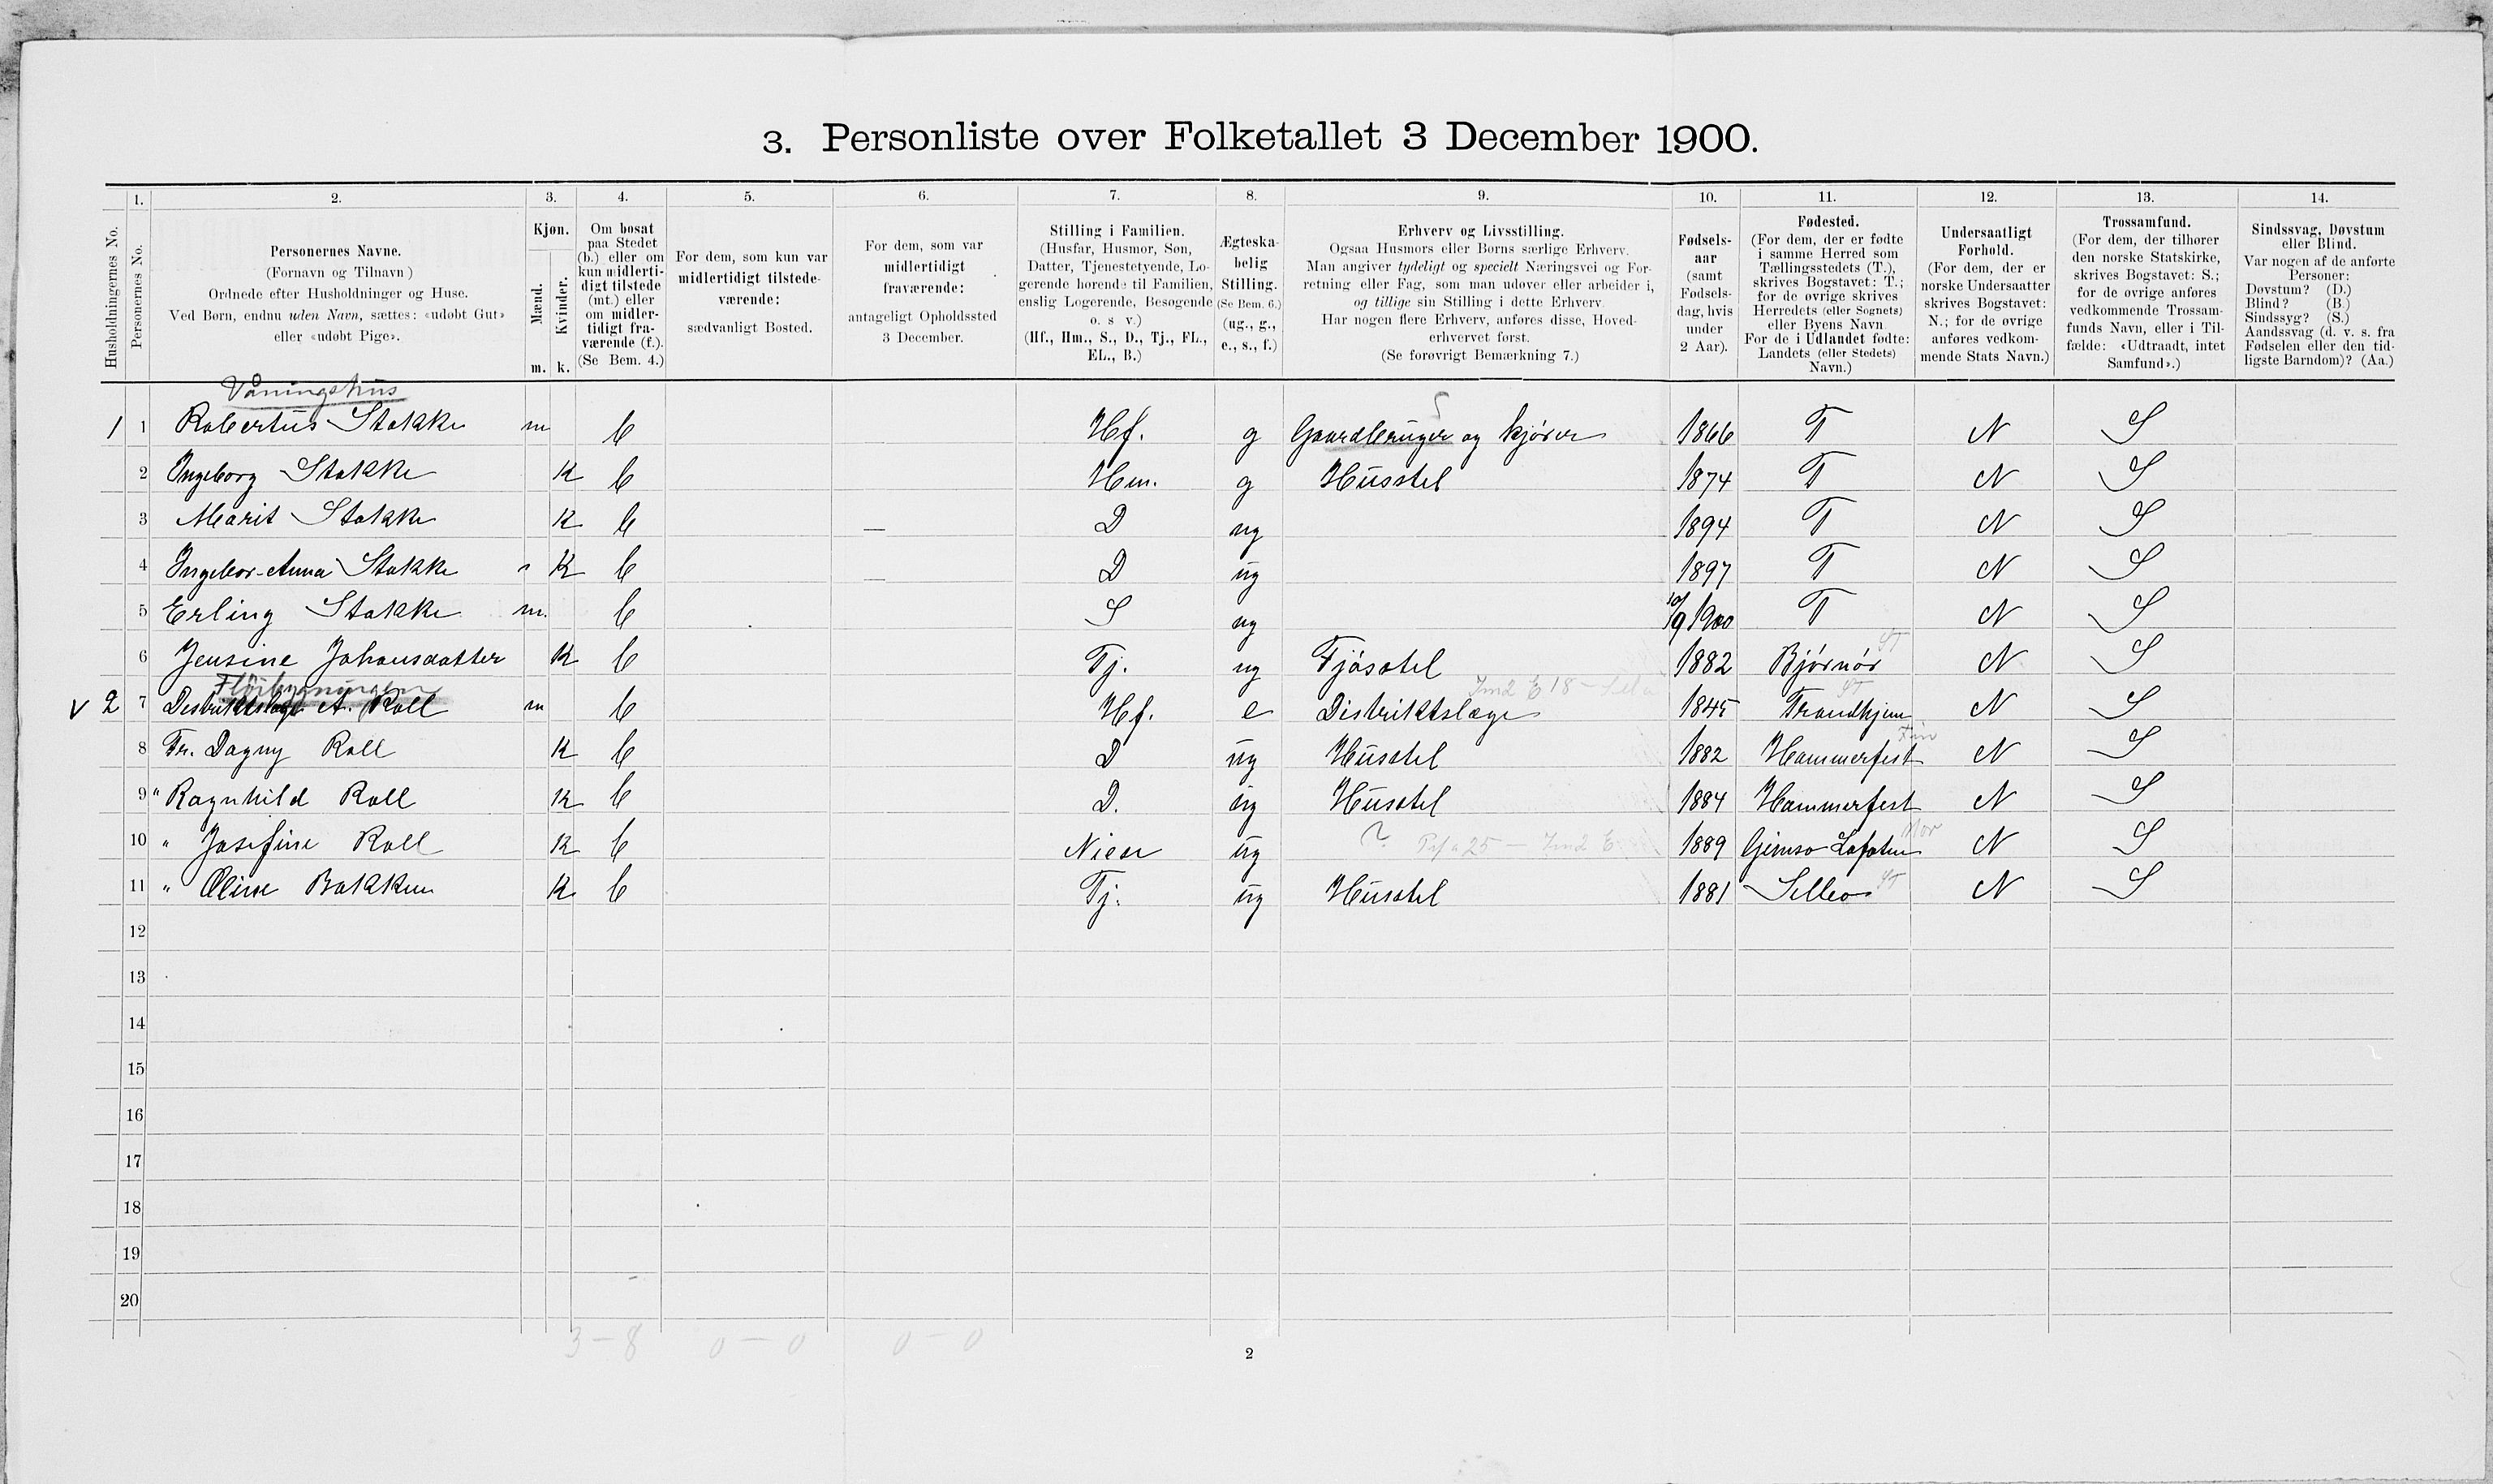 3. Personliste over Folketallet 3 December 1900.
1. 2. 3. 4. 5. 6. 7. 8. 9. 10. 11. 12. 13. 14.
Husholdningernes No.
Personernes No.
Personernes Navne.
(Fornavn og Tilnavn)
Ordnede efter Husholdninger og Huse.
Ved Børn, endnu uden Navn, sættes: «udøbt Gut»
eller «udøbt Pige».
Kjøn.
Mænd.
Kvinder.
m. k.
Om bosat
paa Stedet
(b.) eller om
kun midlerti-
digt tilstede
(mt.) eller
om midler-
tidigt fra-
værende (f.).
(Se Bem. 4.)
For dem, som kun var
midlertidigt tilstede-
værende:
sædvanligt Bosted.
For dem, som var
midlertidigt
fraværende:
antageligt Opholdssted
3 December.
Stilling i Familien.
(Husfar, Husmor, Søn,
Datter, Tjenestetyende, Lo-
gerende hørende til Familien,
enslig Logerende, Besøgende
o. s v.)
(Hf., Hm., S., D., Tj., FL.,
EL., B.)
Ægteska-
belig
Stilling.
(Se Bem. 6.)
(ug., g.,
e., s., f.)
Erhverv og Livsstilling.
Ogsaa Husmors eller Børns særlige Erhverv.
Man angiver tydeligt og specielt Næringsvei og For-
retning eller Fag, som man udøver eller arbeider i,
og tillige sin Stilling i dette Erhverv.
Har nogen flere Erhverv, anføres disse, Hoved-
erhvervet først.
(Se forøvrigt Bemærkning 7.)
Fødsels-
aar
(samt
Fødsels-
dag, hvis
under
2 Aar).
Fødested.
(For dem, der er fødte
i samme Herred som
Tællingsstedets (T.),
skrives Bogstavet: T.;
for de øvrige skrives
Herredets (eller Sognets)
eller Byens Navn.
For de i Udlandet fødte:
Landets (eller Stedets)
Navn.)
Undersaatligt
Forhold.
(For dem, der er
norske Undersaatter
skrives Bogstavet:
N.; for de øvrige
anføres vedkom-
mende Stats Navn.)
Trossamfund.
(For dem, der tilhører
den norske Statskirke,
skrives Bogstavet: S.;
for de øvrige anføres
vedkommende Trossam-
funds Navn, eller i Til-
fælde: «Udtraadt, intet
Samfund».)
Sindssvag, Døvstum
eller Blind.
Var nogen af de anførte
Personer:
Døvstum? (D.)
Blind? (B.)
Sindssyg? (S.)
Aandssvag (d. v. s. fra
Fødselen eller den tid-
ligste Barndom)? (Aa.)
Våningshus
1 1 Robertus Stokke m b Hf. g Gaardbruger og kjører 1866 T N S
2 Ingeborg Stokke K b Hm. g Husstel 1874 T N S
3 Marit Stokke K b — D ug 1894 T N S
4 Ingebor-Anna Stokke K b — D ug 1897 T N S
5 Erling Stokke m. b S ug 10/9 1900 T N S
6 Jensine Johansdatter K b Tj. ug Fjøsstel 1882 Bjørnør ST N S
v 2 7 Distriktslæge A. Roll m b Hf. e Distriktslæge 1845 Trondhjem ST N S
8 Fr. Dagny Roll K b D ug Husstel 1882 Hammerfest Fin N S
9 " Ragnhild Roll K b D. ug Husstel 1884 Hammerfest N S
10 " Josefine Roll K b Niese ug ? 1889 Gimsø Lofoten Nor N S
11 " Oline Bakken K b Tj. ug Husstel 1881 Selleo ST N S
12
13
14
15
16
17
18
19
20
3 – 8 0 – 0 0 – 0
2